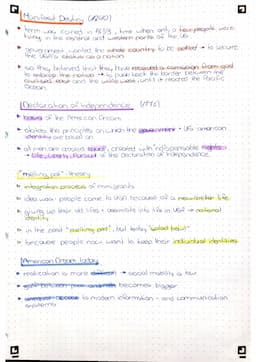 Manifest Destiny (1840)
term was coined in 1845, time when only a few people were
living in the central and western parts of the US
government wanted the whole country to be settled → to secure
the USA's status as a nation
so they believed that they have received a commission from god
to enlarge the nation → to push back the border between the
civilized east and the wild west until it reached the Pacific
Ocean
Declaration of Independence (1776)
basis of the American Dream
states the principles on which the government + US american
identity are based on
all men are created equal, created with indispensable rights
→ Life, Liberty, Pursuit of the Declaration of Independence
"melting pot"-theory
integration process of immigrants
idea was: people come to USA because of a new/better life
giving up their old lifes + assimilate into life in USA → national
identity
in the past "melting pot", but today "salad bowl"
because people now want to keep their individual identities
American Dream today
realization is more difficult → social mobility is low
gap between poor and rich becomes bigger
access to modern information- and communication
systems